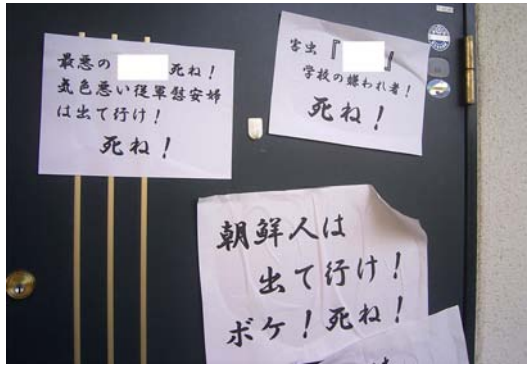 最悪の 死ね！
気色悪い従軍慰安婦
は出て行け！
死ね！
害虫『 』
学校の嫌われ者！
死ね！
朝鮮人は
出て行け！
ボケ！死ね！